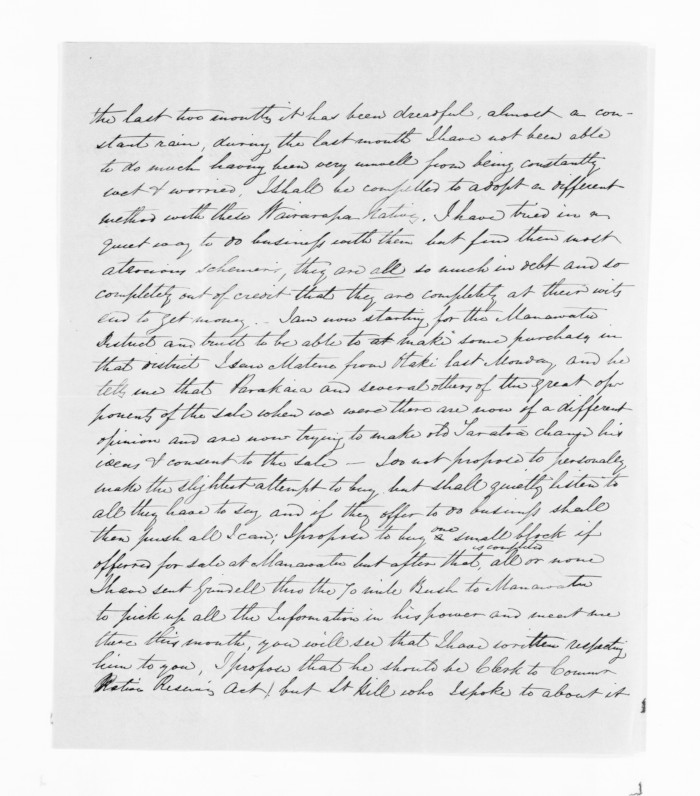 the last two months it has been dreadful, almost a con-
stant rain, during the last month I have not been able
to do much having been very unwell from being constantly
wet & worried, I shall be compelled to adopt a different
method with these Wairarapa Natives. I have tried in a
quiet way to do business with them but find them most
atrocious schemers, they are all so much in debt and so
completely out of credit that they are completely at their wits
end to get money. - I am now starting for the Manawatu
District and trust to be able to make some purchases in
that district I saw Matene from Otaki last Monday and he
tells me that Parakaia and several others of the great op-
ponents of the sale when we were there are now of a different
opinion and are now trying to make old Taratoa change his
ideas & consent to the sale — I do not propose to personally
make the slightest attempt to buy but shall quietly listen to
all they have to say and if they offer to do business shall
then push all I can; I propose to buy one small block if
offerred for sale at Manawatu but after that is completed, all or none
I have sent Grindell thro the 70 mile Bush to Manawatu
to pick up all the Information in his power and meet me
there this month, you will see that I have written respecting
him to you, I propose that he should be Clerk to Commr
Native Reserves Act! but St Hill who I spoke to about it